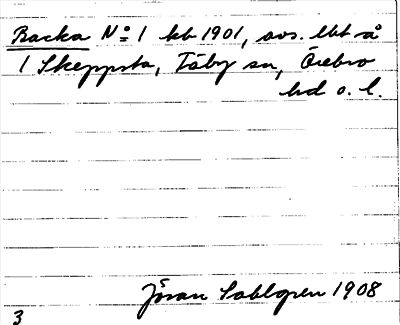 Backa No 1 kb 1901, avs. lht å
1 Skeppsta, Täby sn, Örebro
hd o. l.
Jöran Sahlgren 1908
3